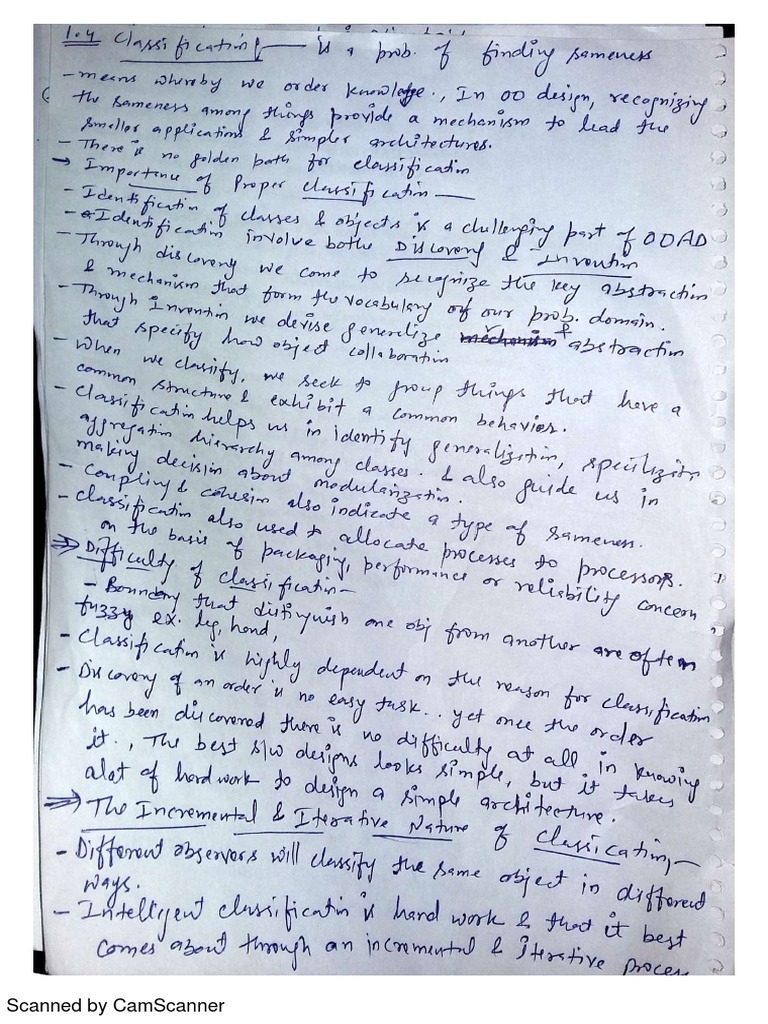 1.4 Classification — is a prob. of finding sameness
- means whereby we order knowledge., In OO design, recognizing
the sameness among things provide a mechanism to lead the
smaller applications & simpler architectures.
- There is no golden path for classificatin
→ Importance of Proper classificatin —
- Identificatin of classes & objects is a challenging part of OOAD
- Identificatin involve bothe Discovery & Inventin
- Through discovery we come to recognize the key abstractin
& mechanism that form the vocabulary of our prob. domain.
- Through Inventin we devise generalize mechanism & abstractin
that specify how object collaboratin
- When we classify, we seek to group things that have a
common structure & exhibit a common behavior.
- Classificatin helps us in identify generalizatin, specilizatin
aggregatin hierarchy among classes. & also guide us in
making decisin about modularizatin.
- Coupling & cohesin also indicate a type of sameness.
- Classificatin also used to allocate processes to processors.
on the basis of packaging, performance or reliability concern,
⇒ Difficulty of classificatin —
- Boundary that distinguish one obj from another are often
fuzzy ex: leg, hand,
- Classificatin is highly dependent on the reason for classificatin
- Discovery of an order is no easy task.. yet once the order
has been discovered there is no difficulty at all in knowing
it., The best s/w designs looks simple, but it takes
alot of hard work to design a simple architecture.
⇒ The Incremental & Iterative Nature of classicating —
- Different observers will classify the same object in different
ways.
- Intelligent classificatin is hard work & that it best
comes about through an incremental & iterative process
Scanned by CamScanner